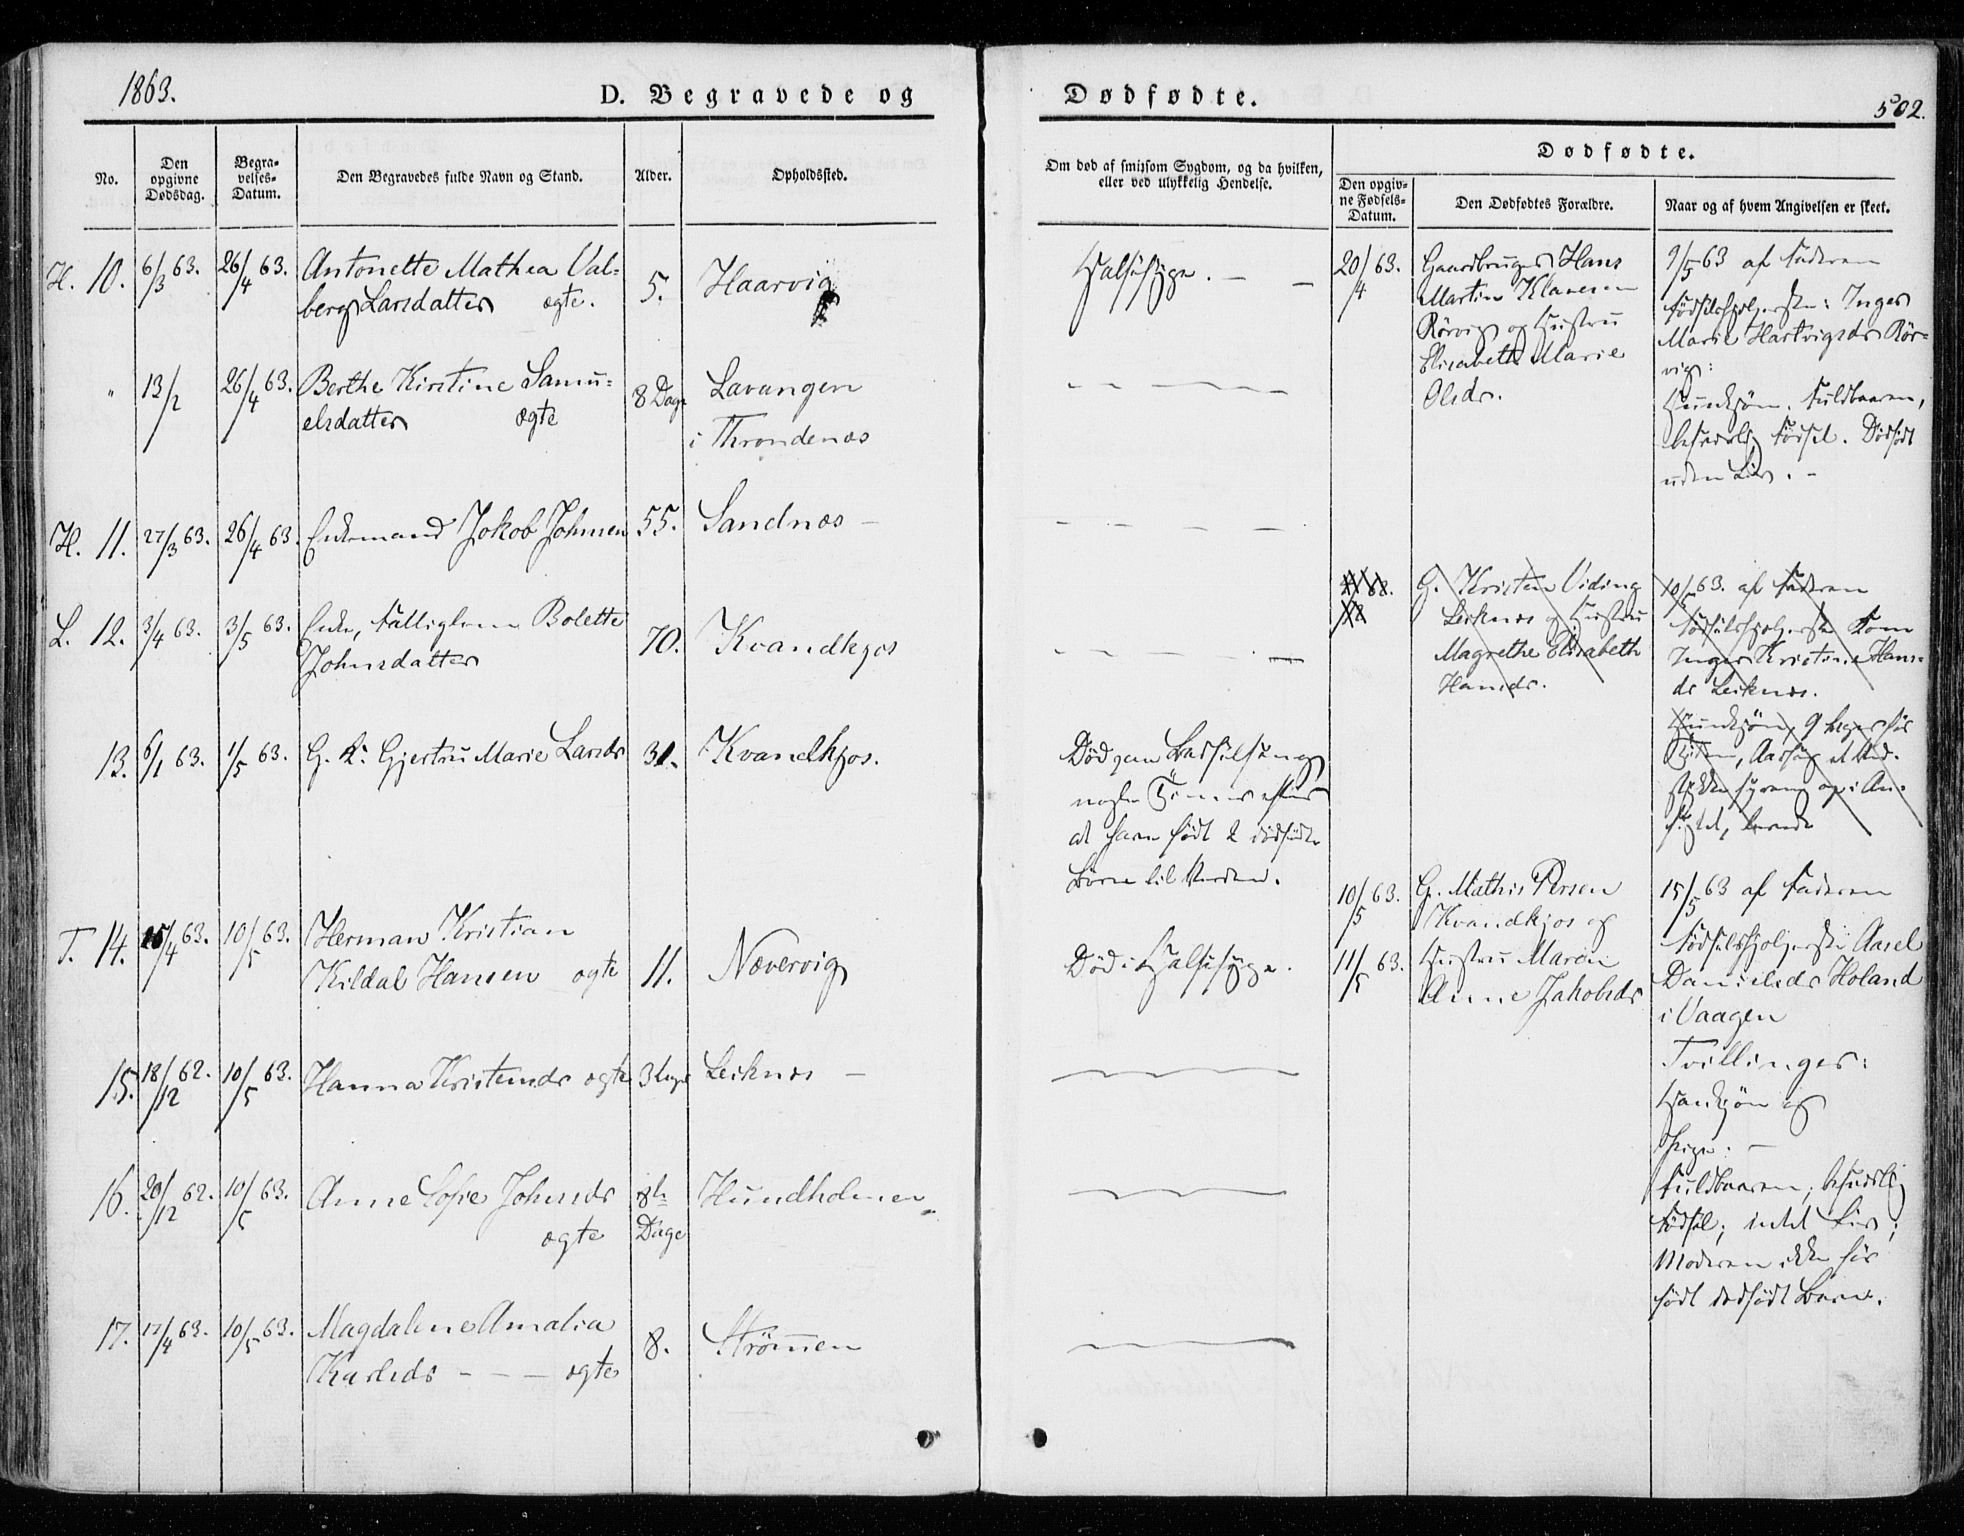 1863.
D. Begravede og
No.
Den opgivne Dødsdag.
Begravelses-Datum.
Den Begravedes fulde Navn og Stand.
Alder.
Opholdssted.
H. 10. 6/3 63. 26/4 63. Antonette Mathea Val-
berg Larsdatter ægte. 5. Haarvig
" 13/2 26/4 63. Berthe Kirstine Samu-
elsdatter ægte 8 Dage Lavangen
i Throndenæs
H. 11. 27/3 63. 26/4 63. Enkemand Jakob Johnsen 55. Sandnæs –
L. 12. 3/4 63. 3/5 63. Enke, Fattiglem Bolette
Johnsdatter 70. Kvandkjos
13. 6/1 63. 1/5 63. G. K. Gjertru Marie Larsdr 31. Kvandkjos.
T. 14. 15/4 63. 10/5 63. Herman Kristian
Kildal Hansen ægte 11. Nævervig
15. 18/12 62. 10/5 63. Hanna Kristensdr ægte 3 Leiknæs –
16. 20/12 62. 10/5 63. Anne Sofie Johnsdr
ægte 8 Dage Hundholmen
17. 12/4 63. 10/5 63. Magdalene Amalia
Karlsdr – – – ægte 8. Strömmen
Dødfødte.
502.
Om død af smitsom Sygdom, og da hvilken,
eller ved ulykkelig Hendelse.
Dødfødte.
Den opgivne Fødsels-Datum.
Den Dødfødtes Forældre.
Naar og af hvem Angivelsen er skeet.
Halssyge. – –
Død paa Barselseng
nogle Timer efter
at have født 2 dødfødte
Børn til Verden.
Død i Halssyge.
20/4 63. Gaardbruger Hans
Martin Klausen
Rörvig og Hustru
Elisabeth Marie
Olsdr.
9/5 63 af Faderen
Fødselshjelperske: Inger
Marie Hartvigsdr Rör-
vig:
Hunkjøn. Fuldbaaren,
besværlig Fødsel. Dødfødt
uden Liv. –
G. Kristen Viding
Leiknæs og Hustru
Magrethe Elisabeth
Hansdr.
10/5 63. af Faderen
Fødselshjelperske
Inger Kristine Hans-
dr Leiknæs.
Hunkjøn, 9 Uger før
Tiden,
10/5 63.
11/5 63.
G. Mathis Persen
Kvandkjos og
Hustru Maren
Anne Jakobsdr
15/5 63 af Faderen
Fødselshjelperske Aasel
Danielsdr Holand
i Vaagen
Tvillinger:
Hankjøn og
Pige: –
Fuldbaaren; besværlig
Fødsel; intet Liv;
Moderen ikke før
født dødfødt Barn.